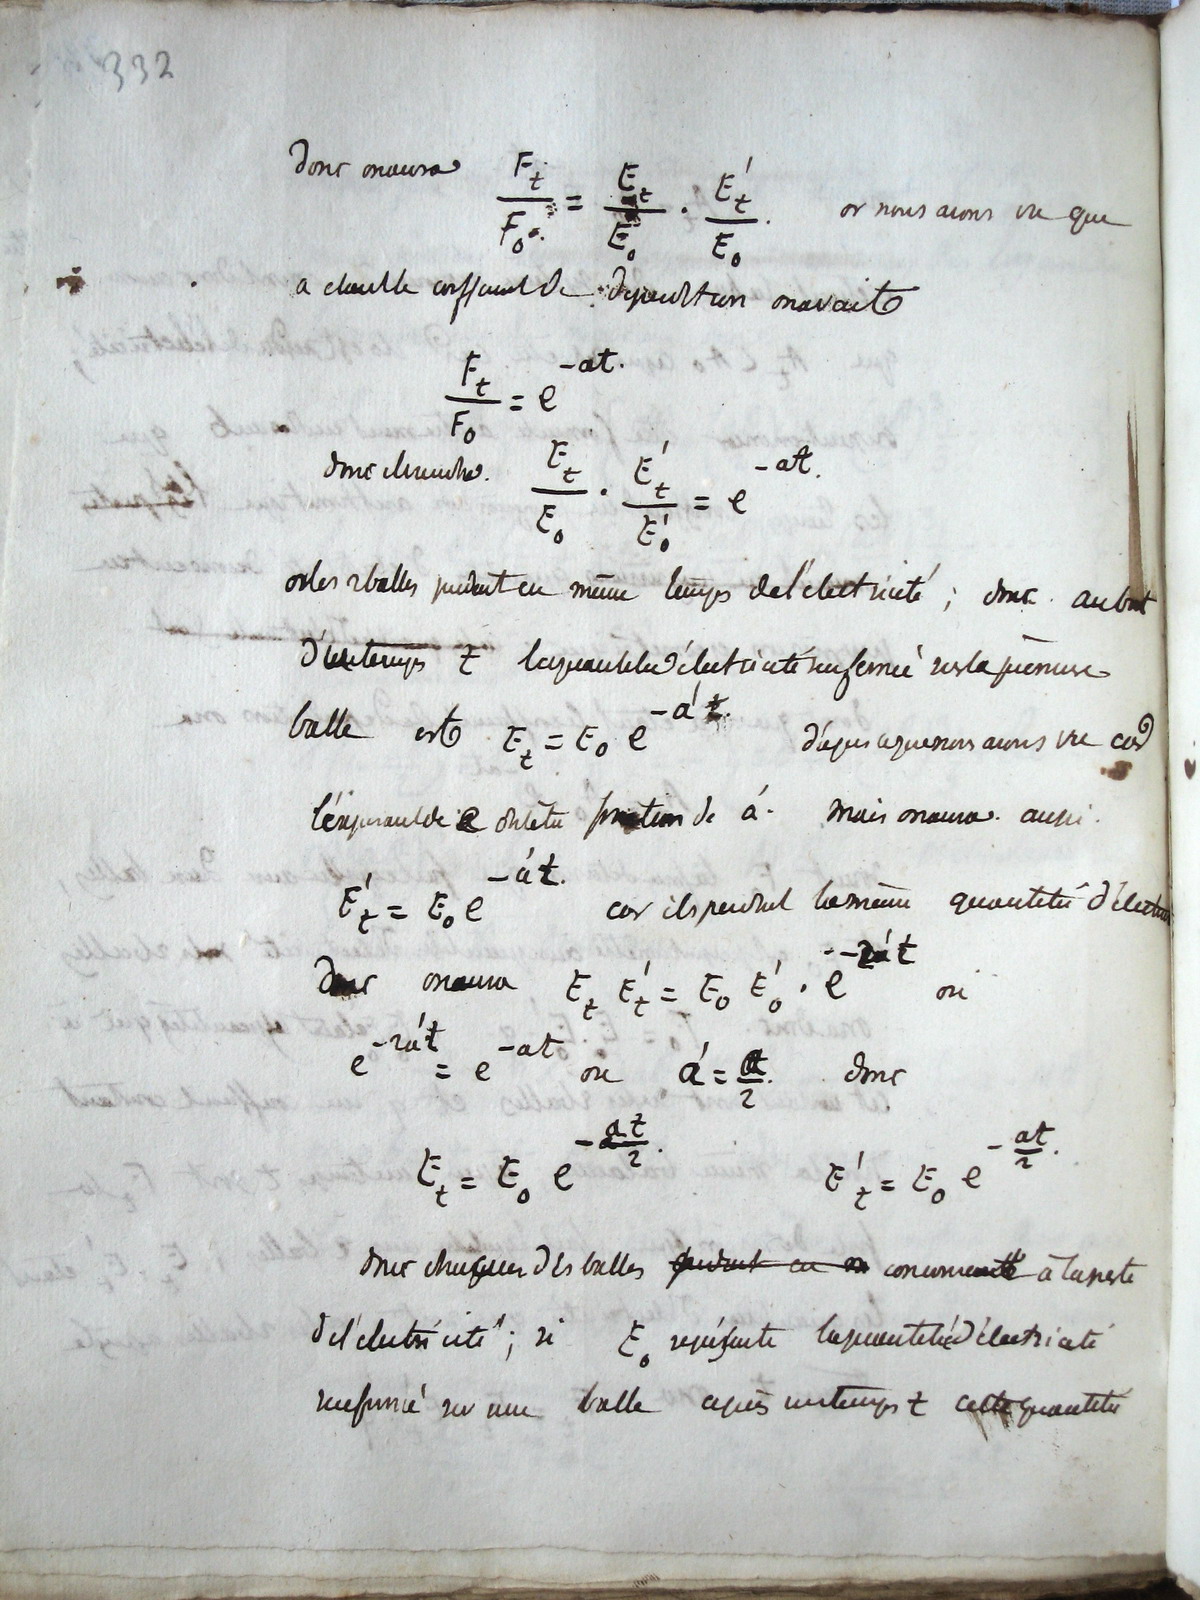 332
donc on aura F_t/F_0 = E_t/E_0 · E'_t/E_0 or nous avons vu que
a étant le coefficient de déperdition on avait
F_t/F_0 = e^{-at}
donc E_t/E_0 · E'_t/E'_0 = e^{-at}
or les 2 balles perdent en même temps de l'électricité ; donc au bout
d'un temps t la quantité d'électricité renfermé sur la première
balle est E_t = E_0 e^{-a't} d'après ce que nous avons vu car
l'exposant de e fonction de a'. mais on aura aussi
E'_t = E_0 e^{-a't} car ils perdent la même quantité
donc on aura E_t E'_t = E_0 E'_0 · e^{-2a't} ou
e^{-2a't} = e^{-at} ou a' = a/2 donc
E_t = E_0 e^{-at/2} E'_t = E_0 e^{-at/2}
donc chacune des balles à la perte
de l'électricité ; si E_0 représente la quantité d'électricité
renfermé sur une balle après un temps t cette quantité